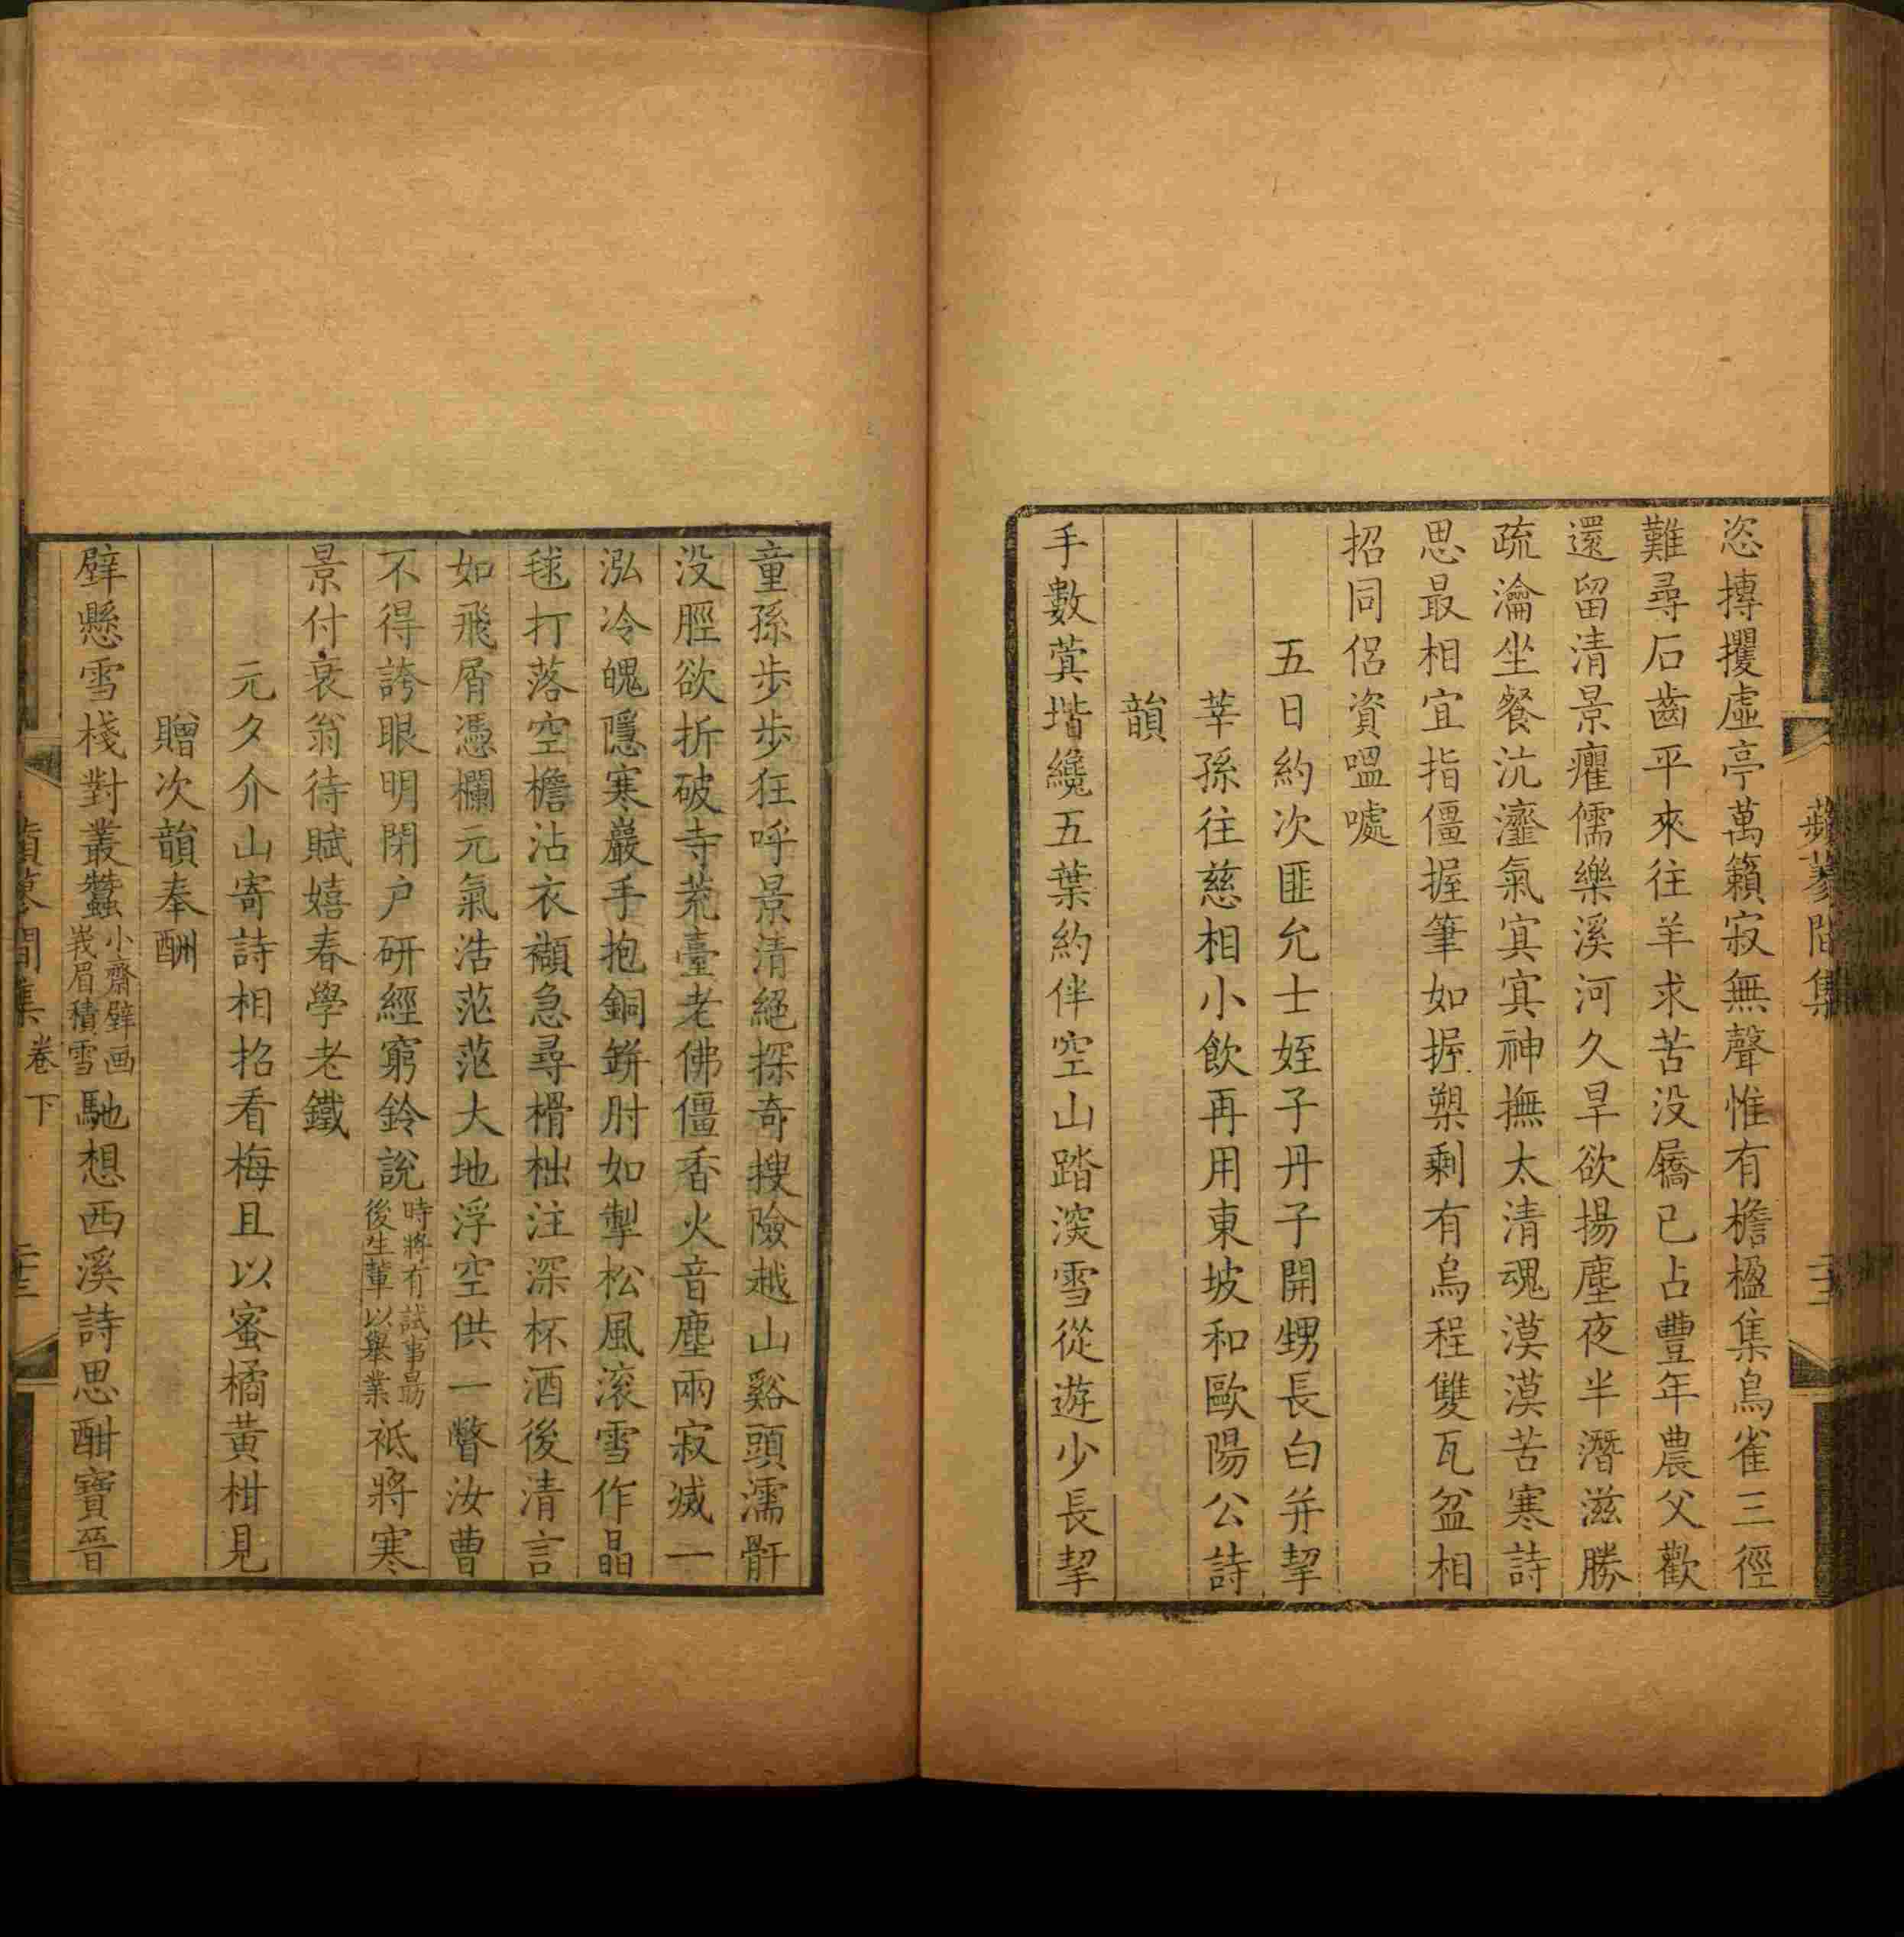 蘋蓼閒集
恣摶攫虛亭萬籟寂無聲惟有檐楹集烏雀三徑
難尋石齒平來往羊求苦没屩已占豐年農父歡
還留清景癯儒樂溪河久旱欲揚塵夜半潛滋勝
疏瀹坐餐沆瀣氣寘寘神撫太清魂漠漠苦寒詩
思最相宜指僵握筆如握槊剩有烏程雙瓦盆相
招同侶資嗢噱
五日約次匪允士姪子丹子開甥長白并挈
莘孫往慈相小飲再用東坡和歐陽公詩
韻
手數蓂堦纔五葉約伴空山踏深雪從遊少長挈
童孫步步狂呼景清絕探奇搜險越山谿頭濡骭
没脛欲折破寺荒臺老佛僵香火音塵兩寂滅一
泓冷魄隱寒巖手抱銅鉼肘如掣松風滚雪作晶
毬打落空檐沾衣襭急尋榾柮注深杯酒後清言
如飛屑憑欄元氣浩茫茫大地浮空供一瞥汝曹
不得誇眼明閉户研經窮鈴說時將有試事勗後生輩以舉業祗將寒
景付衰翁待賦嬉春學老鐵
元夕介山寄詩相招看梅且以蜜橘黃柑見
贈次韻奉酬
壁懸雪棧對叢蠶小齋壁画峩眉積雪馳想西溪詩思酣寶晉
蘋蓼閒集 卷下